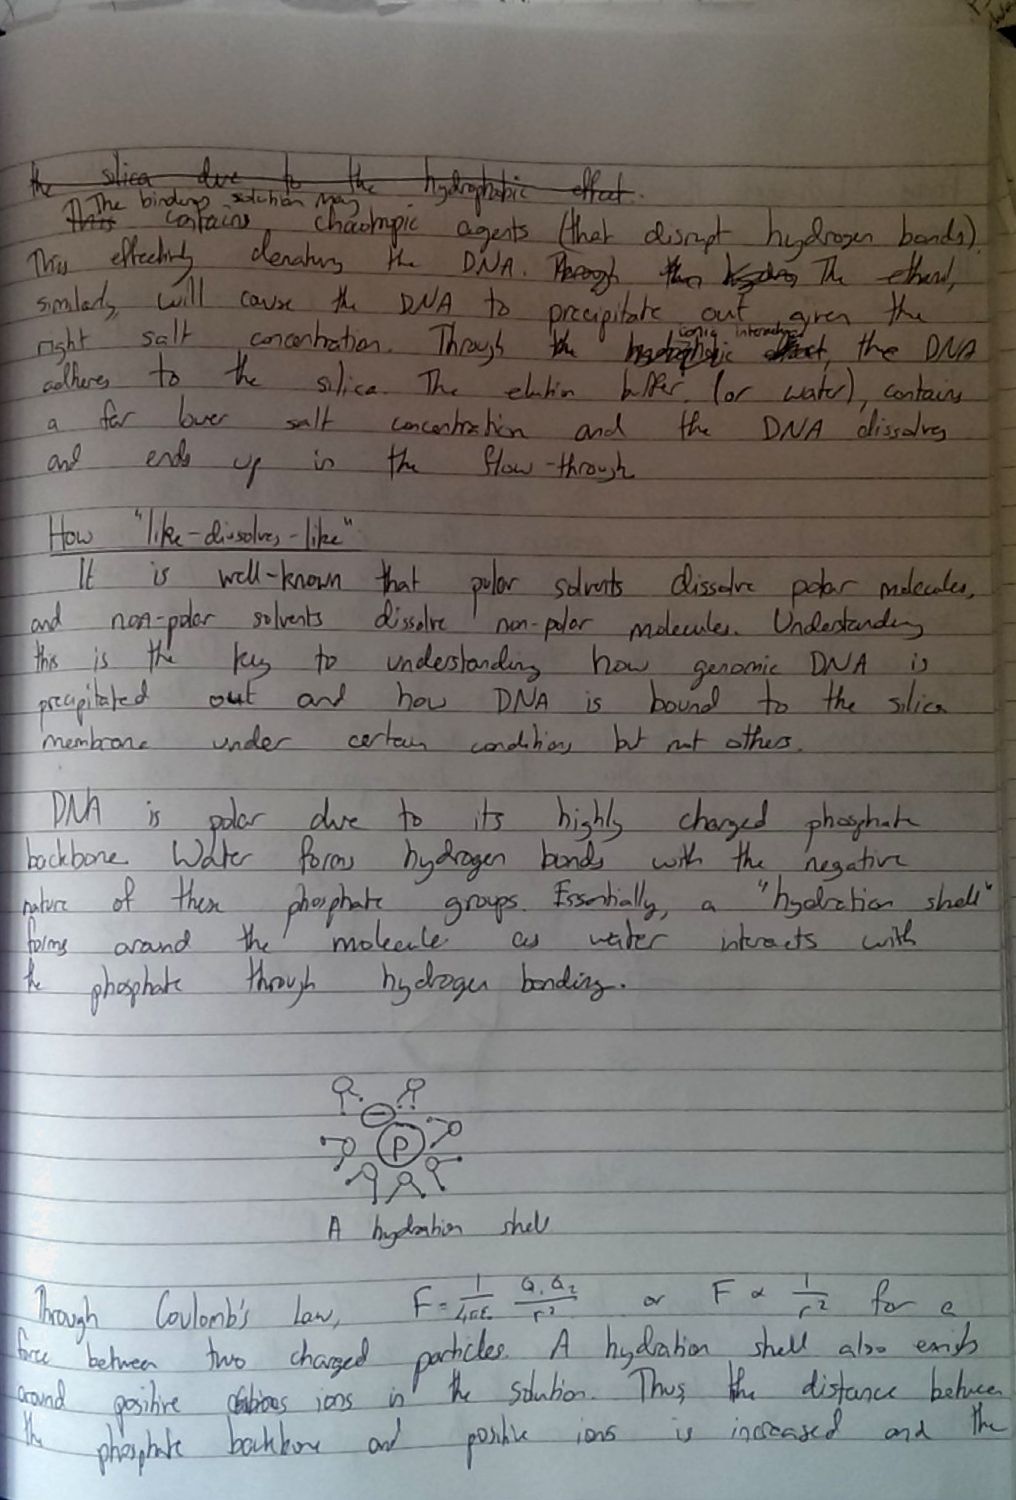 the silica due to the hydrophobic effect.
This The binding solution may
contains chaotropic agents (that disrupt hydrogen bonds).
This effectively denatures the DNA. Through The ethanol,
similarly, will cause the DNA to precipitate out given the
right salt concentration. Through the hydrophobic effect, ionic interactions the DNA
adheres to the silica. The elution buffer (or water), contains
a far lower salt concentration and the DNA dissolves
and ends up in the flow-through
How "like-dissolves-like"
It is well-known that polar solvents dissolve polar molecules,
and non-polar solvents dissolve non-polar molecules. Understanding
this is the key to understanding how genomic DNA is
precipitated out and how DNA is bound to the silica
membrane under certain conditions but not others.
DNA is polar due to its highly charged phosphate
backbone. Water forms hydrogen bonds with the negative
nature of these phosphate groups. Essentially, a "hydration shell"
forms around the molecule as water interacts with
the phosphate through hydrogen bonding.
−
P
A hydration shell
Through Coulomb's Law, F = 1/4πε Q₁Q₂/r² or F ∝ 1/r² for a
force between two charged particles. A hydration shell also exists
around positive ions in the solution. Thus, the distance between
the phosphate backbone and positive ions is increased and the